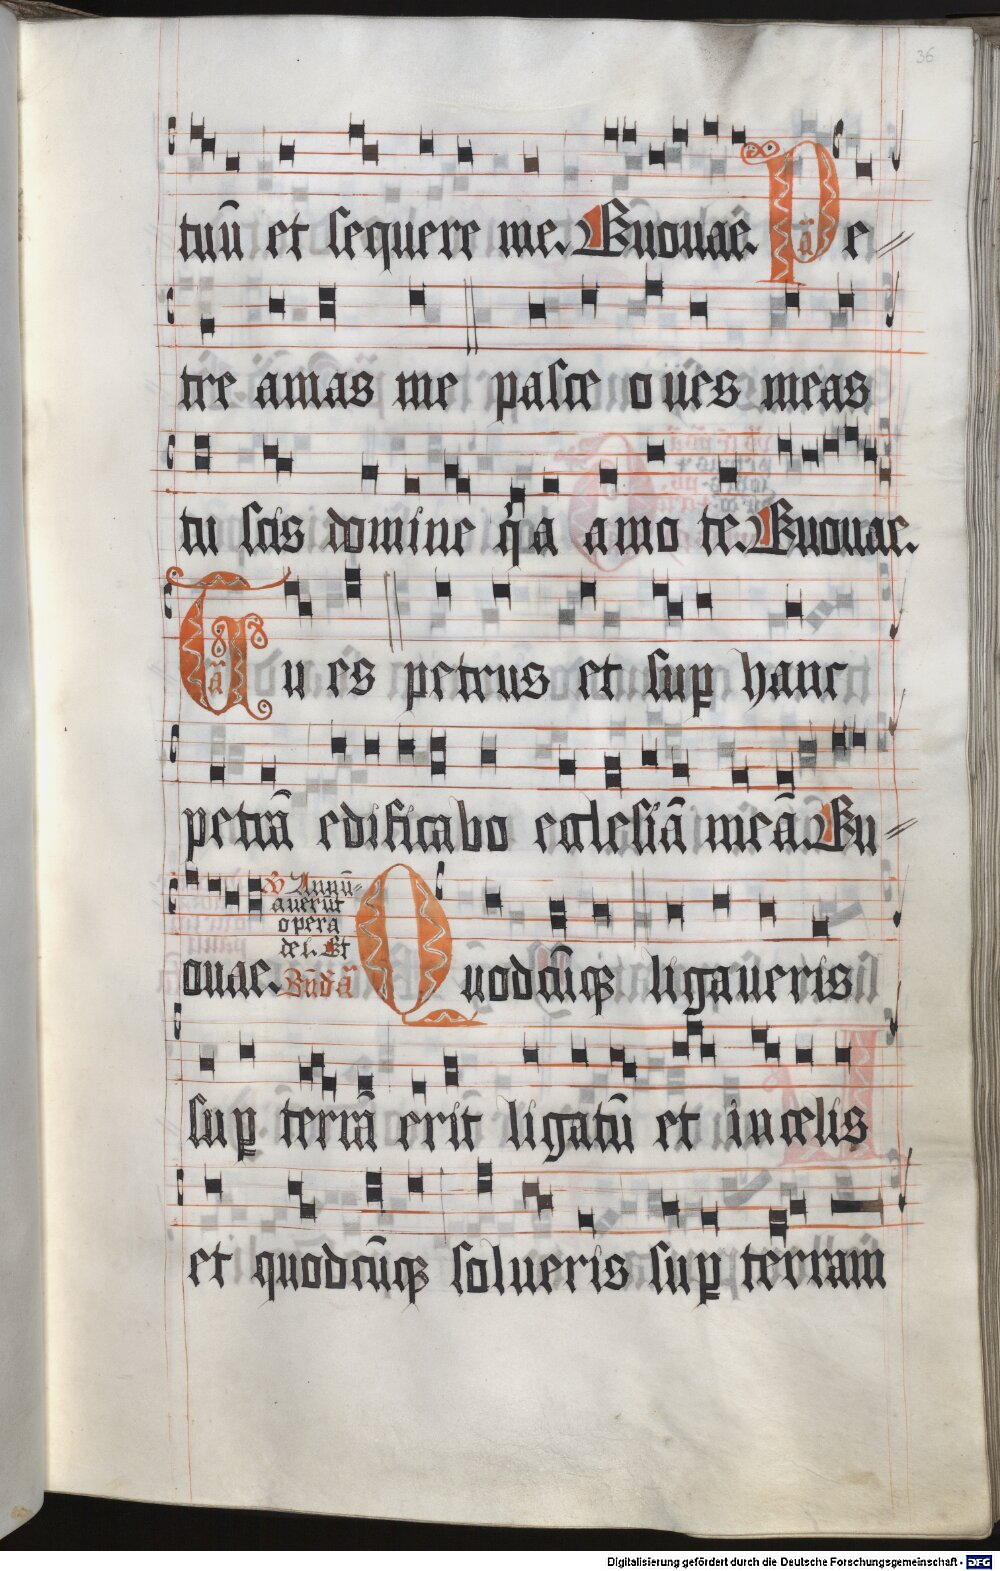 36
tuū et sequere me. Euouae. P aͣ e⸗
tre amas me pasce oues meas
tu scis domine qͥa amo te. Euouae.
T aͣ u es petrus et suꝑ hanc
petrā edificabo ecclesiā meā. Eu⸗
℣ Annū⸗
auerūt
opera
dei. Et
ouae. Bn̄dc̄ā Quodcūqꝫ ligaueris
suꝑ terrā erit ligatū et in celis
et quodcūqꝫ solueris suꝑ terram
Digitalisierung gefördert durch die Deutsche Forschungsgemeinschaft - DFG